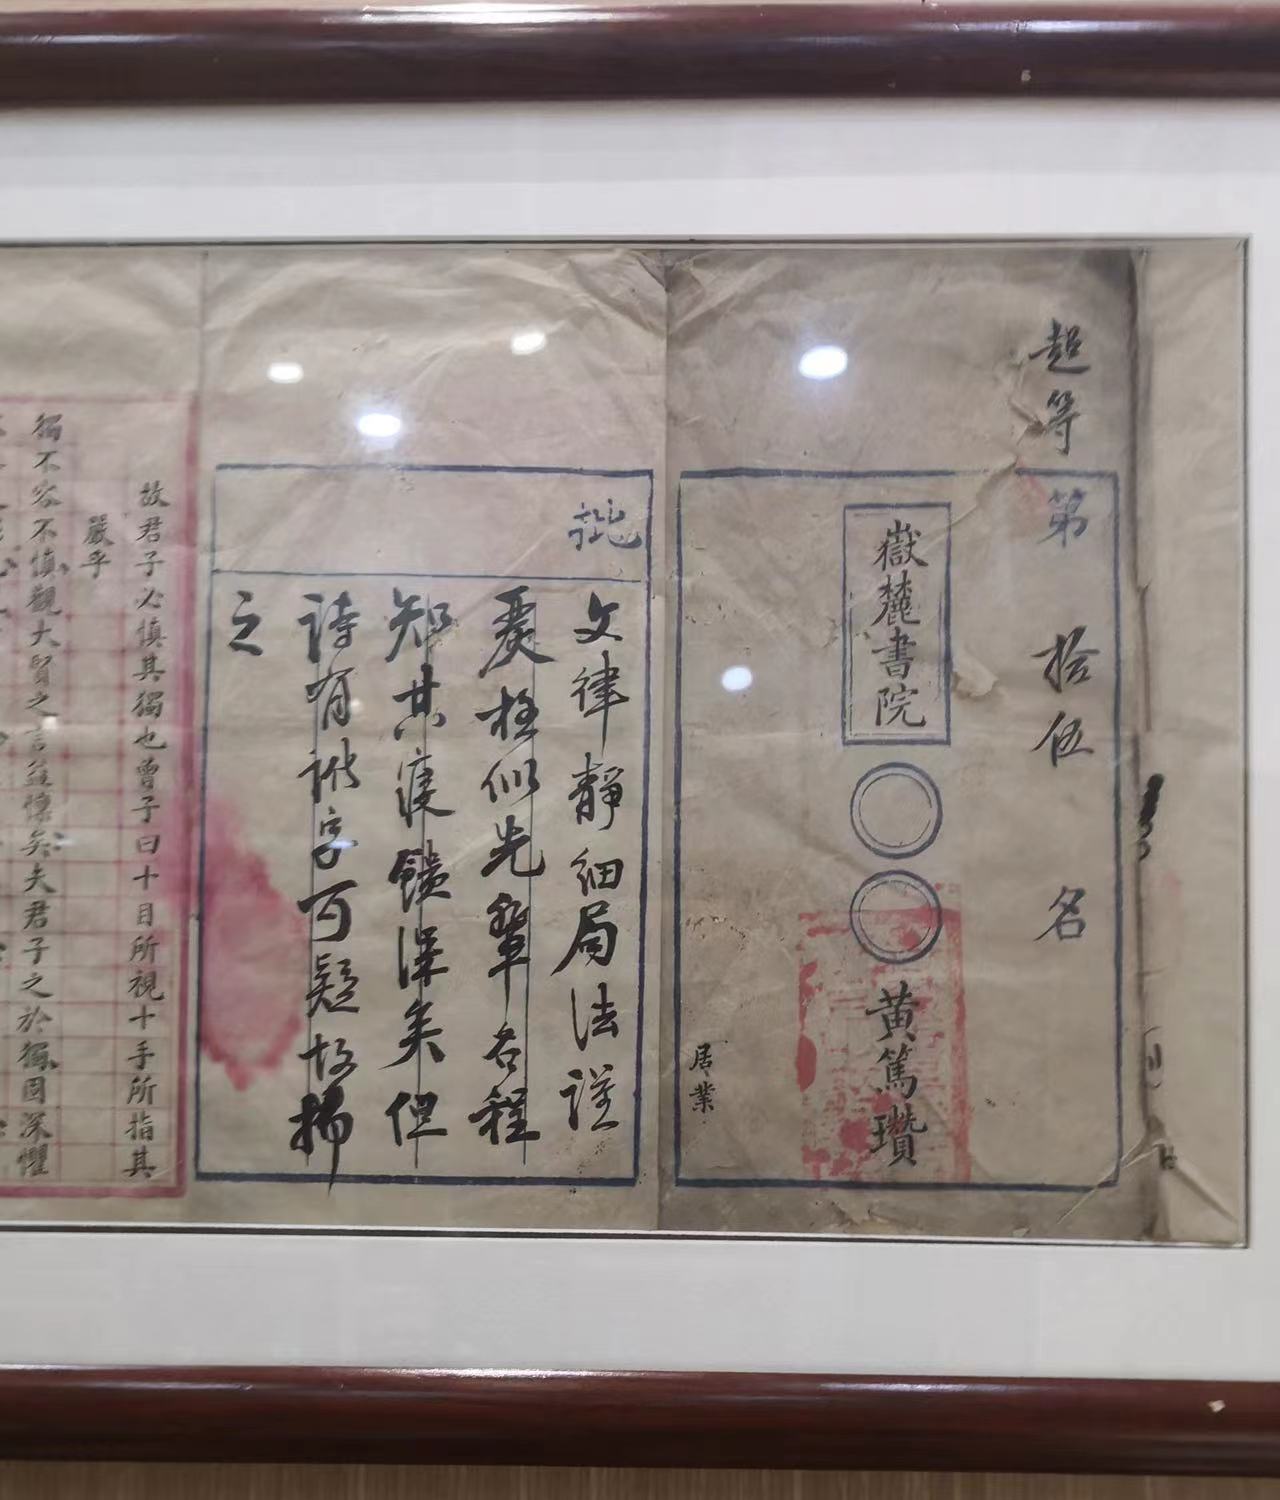 超等第拾伍名
嶽麓書院
黄篤瓚
居業
批
文律靜細局法謹
嚴極似先輩名程
知其寢饋深矣但
詩有訛字可疑故揚
之
故君子必慎其獨也曾子曰十目所視十手所指其
嚴乎
獨不容不慎觀大賢之言益懍矣夫君子之於獨固深懼